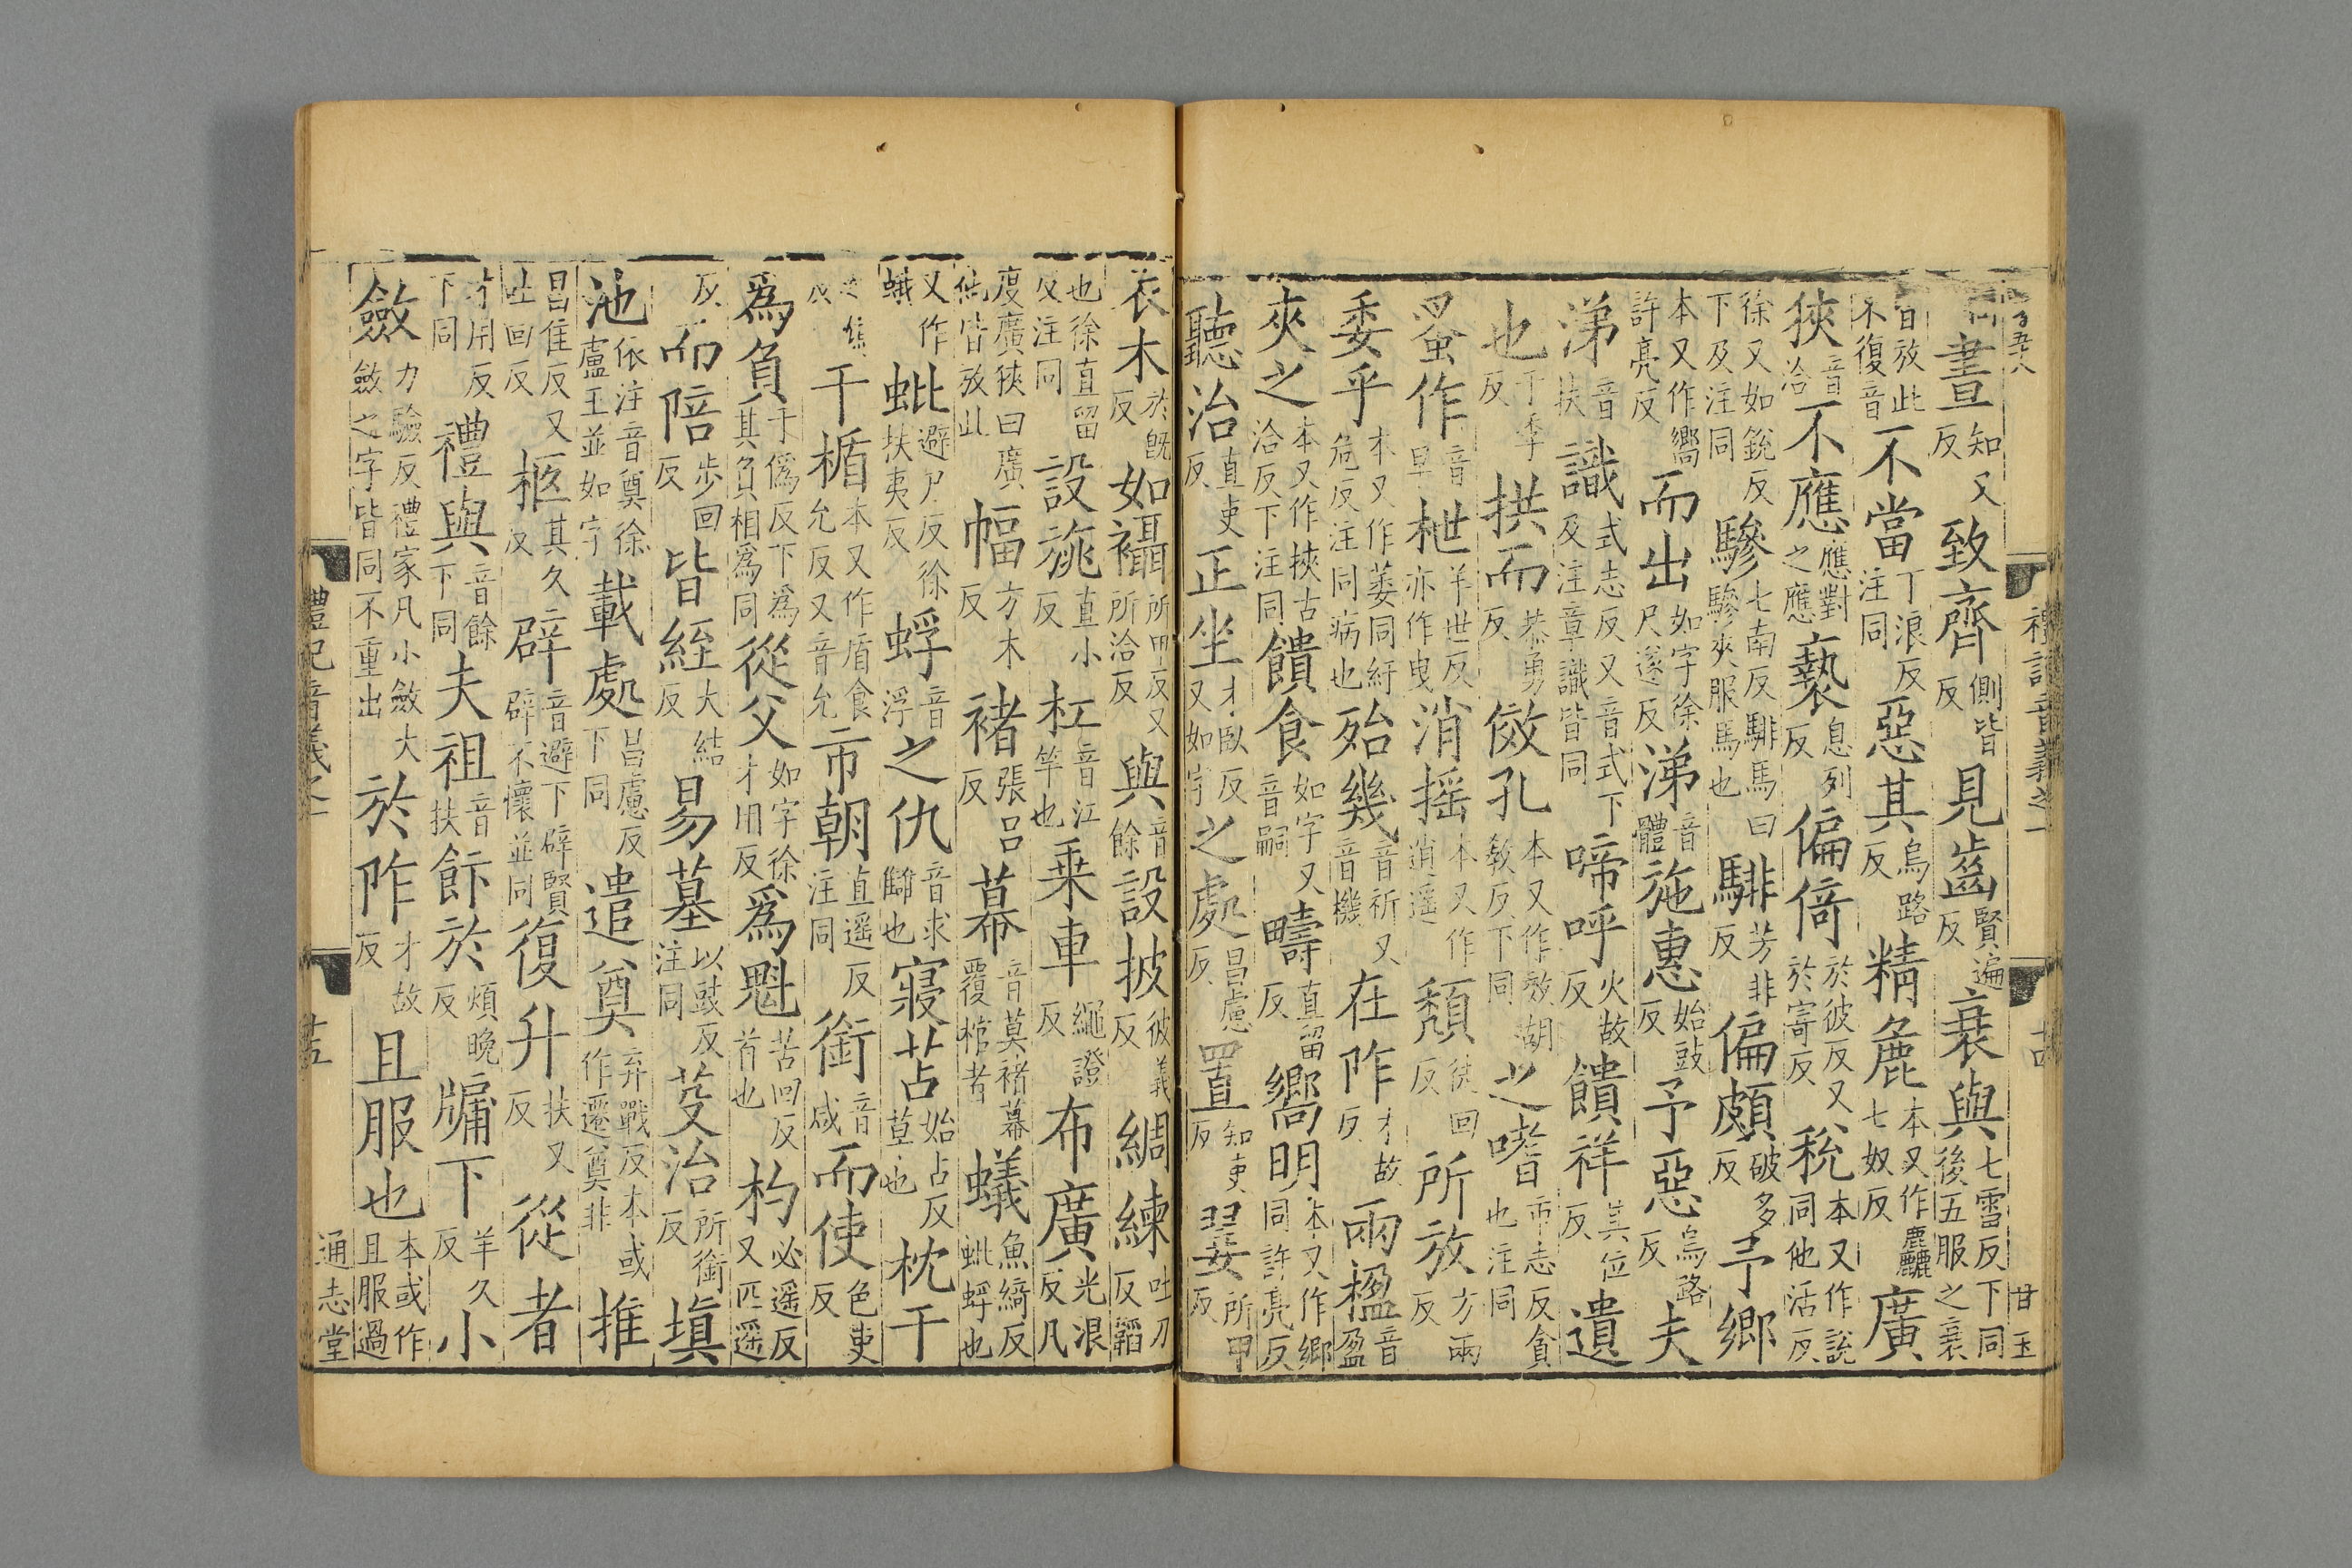 禮記音義之一 十四 甘玉
晝知又反致齊側皆反見齒賢遍反衰與七雪反下同後五服之衰
皆放此不復音不當丁浪反注同惡其烏路反精麁本又作麤七奴反廣
狹音洽不應應對之應褻息列反偏倚於彼反又於寄反稅本又作說同他活反
徐又如銳反下及注同驂七南反騑馬曰驂夾服馬也騑芳非反偏頗破多反予鄉
本又作嚮許亮反而出如字徐尺遂反涕音體施惠始豉反予惡烏路反夫
涕音扶識式志反又音式下及注章識皆同啼呼火故反饋祥其位反遺
也于季反拱而恭勇反倣孔本又作效胡教反下同之嗜市志反貪也注同
蚤作音早枻羊世反亦作曳消搖本又作逍遥頹徒回反所放方兩反
委乎本又作萎同紆危反注同病也殆幾音祈又音機在阼才故反兩楹音盈
夾之本又作挾古洽反下注同饋食如字又音嗣疇直留反嚮明本又作鄉同許亮反
聽治直吏反正坐才臥反又如字之處昌慮反置知吏反翣所甲反
衣木於既反如襵所甲反又所洽反與音餘設披彼義反綢練吐刀反韜
也徐直留反注同設旐直小反杠音江竿也乗車繩證反布廣光浪反凡
度廣狹曰廣他皆放此幅方木反褚張呂反幕音莫褚幕覆棺者蟻魚綺反蚍蜉也
又作蛾蚍避尸反徐扶夷反蜉音浮之仇音求讎也寢苫始占反草也枕干
反干楯本又作盾食允反又音允市朝直遥反注同銜音咸而使色吏反
爲負于僞反下爲其負相爲同從父如字徐才用反爲魁苦回反首也杓必遥反又匹遥
反而陪步回反皆絰大結反易墓以豉反注同芟治所銜反塡
池依注音奠徐盧王並如字載處昌慮反下同遣奠弃戰反本或作遷奠非推
昌隹反又吐回反柩其久反辟音避下辟賢辟不懷並同復升扶又反從者
才用反下同禮與音餘下同夫祖音扶飰於煩晚反牖下羊久反小
斂力驗反禮家凡小斂大斂之字皆同不重出於阼才故反且服也本或作且服過
禮記音義之一 十五 通志堂